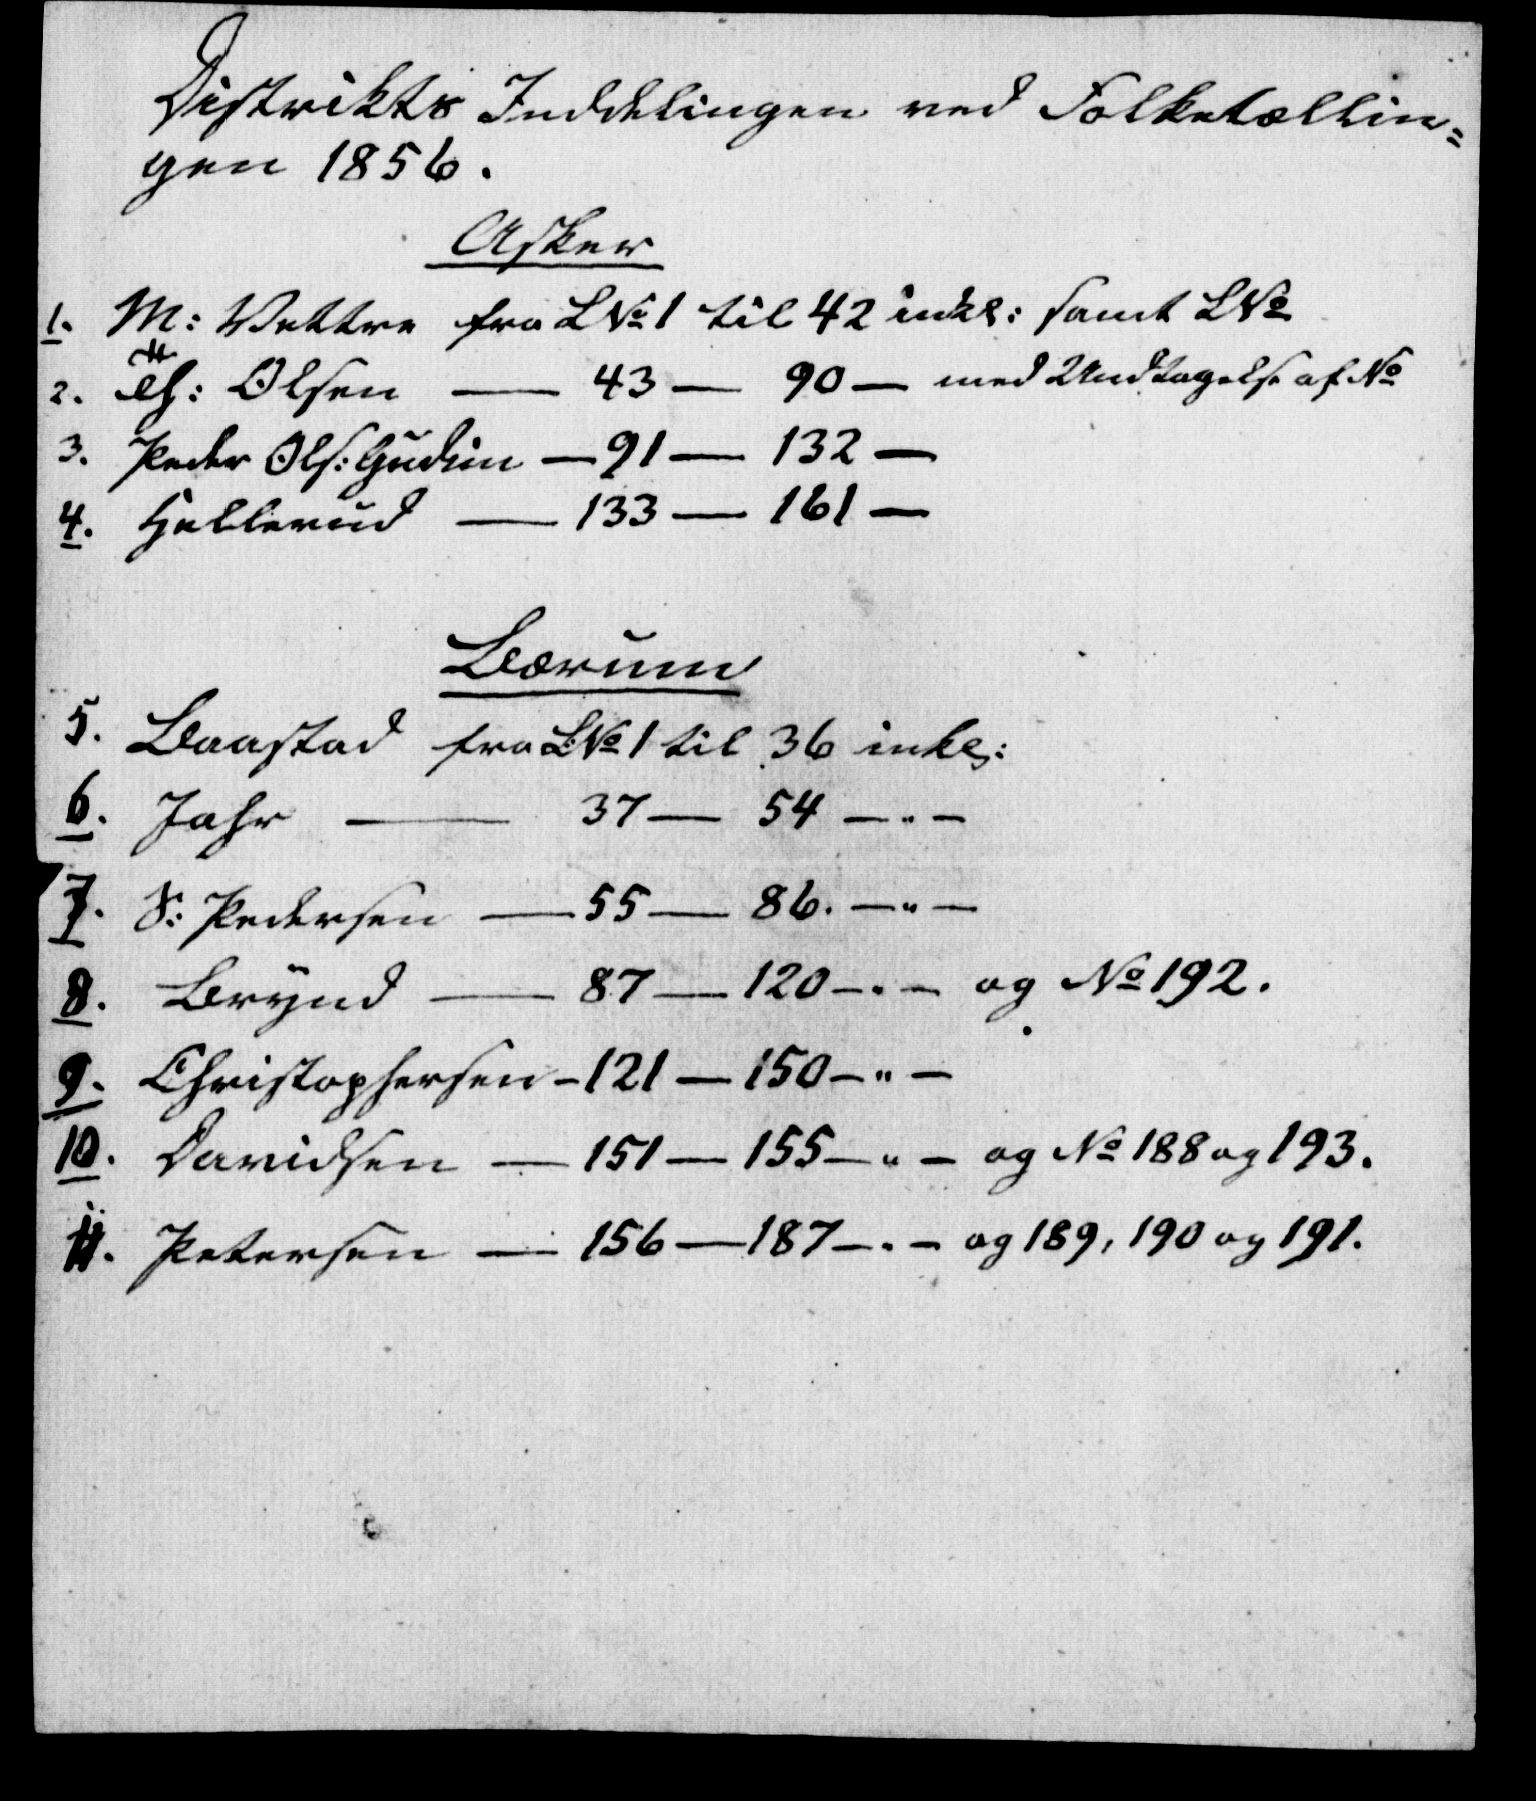 Distrikts Inddelingen ved Folketællin=
gen 1856.
Asker
1. M: Vettre fra L№ 1 til 42 inkl: samt L№
2. Th: Olsen — 43 — 90 — med Undtagelse af №
3. Peder Ols: Gudim — 91 — 132 —
4. Hellerud — 133 — 161 —
Bærum
5. Baastad fra L№ 1 til 36 inkl:
6. Jahr — 37 — 54 — „ —
7. S: Pedersen — 55 — 86. — „ —
8. Brynd — 87 — 120 — „ — og № 192.
9. Christophersen - 121 — 150 — „ —
10. Davidsen — 151 — 155 — „ — og № 188 og 193.
11. Petersen — 156 — 187 — „ — og 189, 190 og 191.